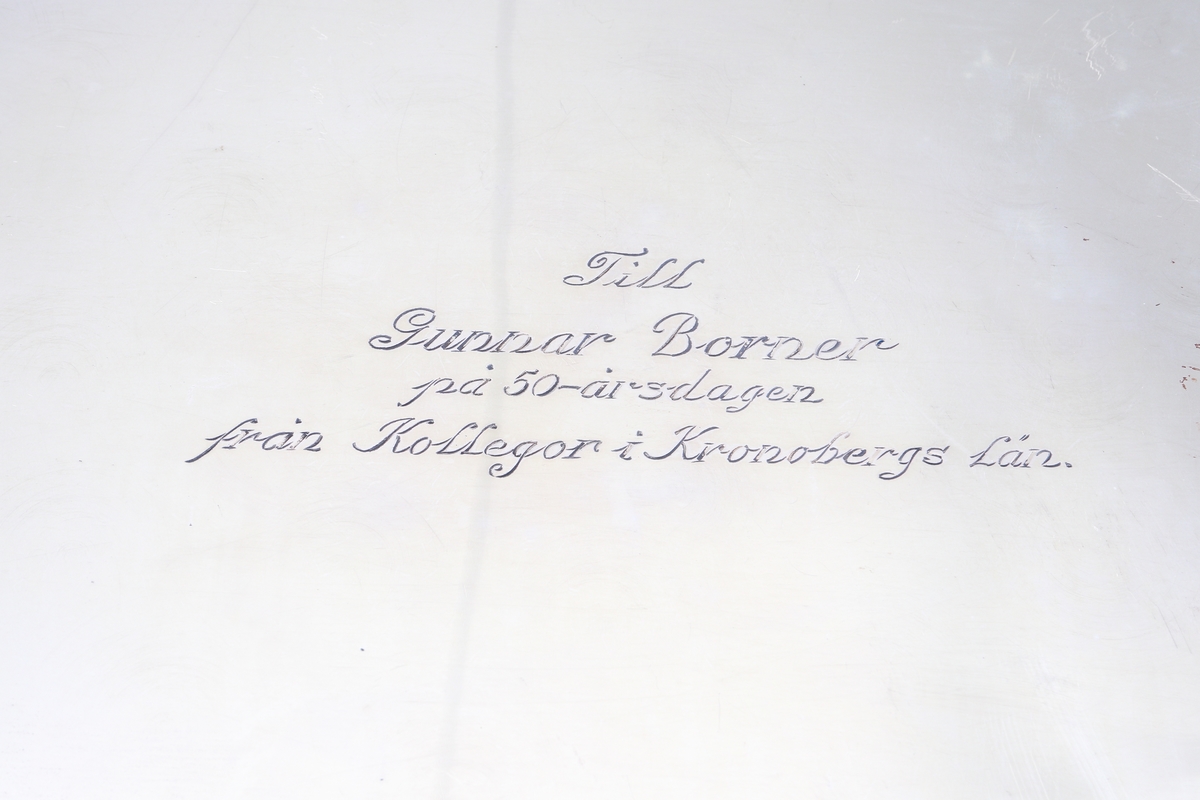 Till
Gunnar Borner
på 50-årsdagen
från Kollegor i Kronobergs Län.